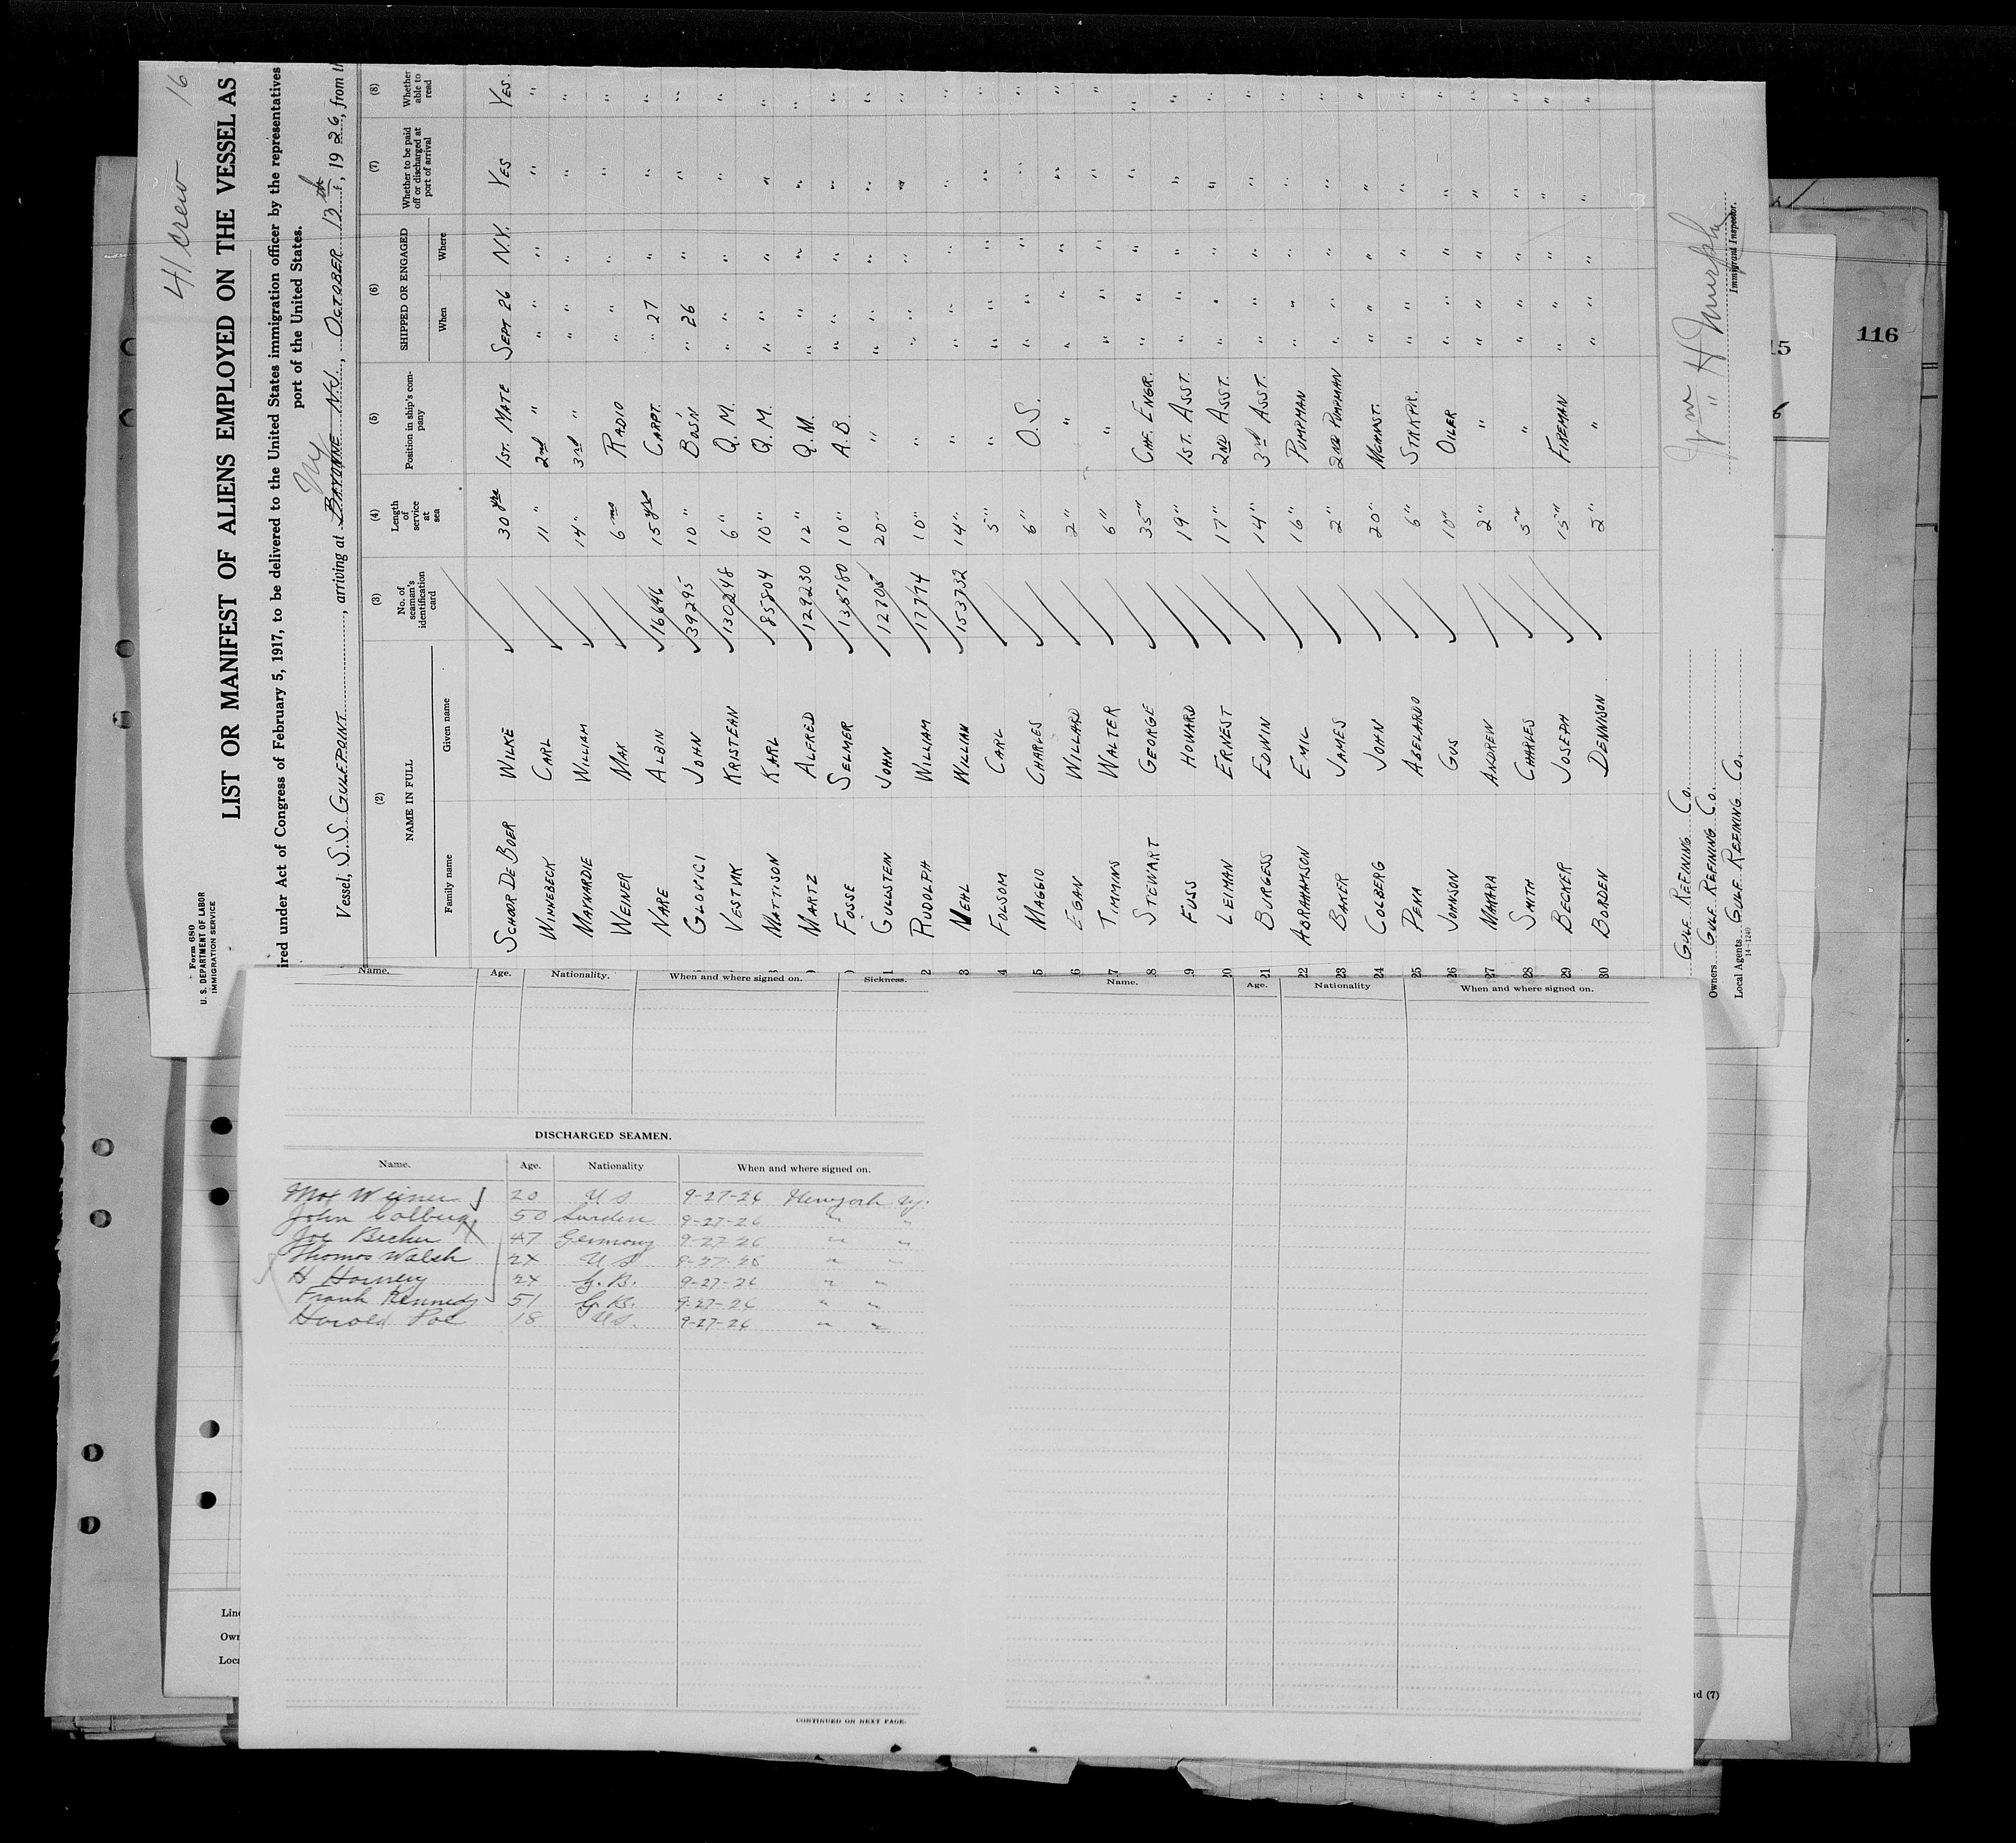 41 crew 16
Form 680
U. S. DEPARTMENT OF LABOR
IMMIGRATION SERVICE
LIST OR MANIFEST OF ALIENS EMPLOYED ON THE VESSEL AS
ired under Act of Congress of February 5, 1917, to be delivered to the United States immigration officer by the representatives
port of the United States.
NY
Vessel, S.S. GULFPOINT, arriving at BAYONNE N.J., OCTOBER 13th, 1926, from th
(2) (3) (4) (5) (6) (7) (8)
NAME IN FULL No. of seaman's identification card Length of service at sea Position in ship's company SHIPPED OR ENGAGED Whether to be paid off or discharged at port of arrival Whether able to read
Family name Given name When Where
SCHOOR DE BOER WILKE 30 yrs 1ST. MATE SEPT 26 N.Y. YES YES.
WINNEBECK CARL 11 " 2nd " " " " " "
MAYNARDIE WILLIAM 14 " 3rd " " " " " "
WEINER MAX 6 ms RADIO " " " " "
NARE ALBIN 16646 15 yrs CARPT. " 27 " " "
GLOVICI JOHN 39295 10 " BOS'N " 26 " " "
VESTVIK KRISTEAN 130248 6 " Q. M. " " " " "
MATISON KARL 85804 10 " Q. M. " " " " "
MARTZ ALFRED 129230 12 " Q. M. " " " " "
FOSSE SELMER 135780 10 " A. B. " " " " "
1 GULLSTEIN JOHN 12705 20 " " " " " " "
2 RUDOLPH WILLIAM 17774 10 " " " " " " "
3 NEHL WILLIAM 153732 14 " " " " " " "
4 FOLSOM CARL 5 " " " " " " "
5 MAGGIO CHARLES 6 " O.S. " " " " "
6 EGAN WILLARD 2 " " " " " " "
7 TIMMINS WALTER 6 " " " " " " "
8 STEWART GEORGE 35 " CHF. ENGR. " " " " "
9 FUSS HOWARD 19 " 1ST. ASST. " " " " "
20 LEIMAN ERNEST 17 " 2ND ASST. " " " " "
21 BURGESS EDWIN 14 " 3rd ASST. " " " " "
22 ABRAHAMSON EMIL 16 " PUMPMAN " " " " "
23 BAKER JAMES 2 " 2ND PUMPMAN " " " " "
24 COLBERG JOHN 20 " MCHNST. " " " " "
25 PENA ABELARDO 6 " STRKPR. " " " " "
26 JOHNSON GUS 10 " OILER " " " " "
27 MAKARA ANDREW 2 " " " " " " "
28 SMITH CHARLES 5 " " " " " " "
29 BECKER JOSEPH 15 " FIREMAN " " " " "
30 BORDEN DENNISON 2 " " " " " " "
GULF REFINING Co.
Owners GULF REFINING Co.
Local Agents GULF REFINING Co.
14-1240
Wm H Murphy
Immigrant Inspector.
15
116
Name. Age. Nationality. When and where signed on. Sickness.
Name. Age. Nationality When and where signed on.
DISCHARGED SEAMEN.
Name. Age. Nationality When and where signed on.
Max Weiner 20 U S 9-27-26 New York Ny.
John Colberg 50 Sweden 9-27-26 " "
Joe Becker 47 Germany 9-27-26 " "
Thomas Walsh 24 U S 9-27-26 " "
H Hornery 24 G. B. 9-27-26 " "
Frank Kennedy 51 G. B. 9-27-26 " "
Harold Poe 18 U S. 9-27-26 " "
CONTINUED ON NEXT PAGE.
Line
Own
Loca
nd (7)